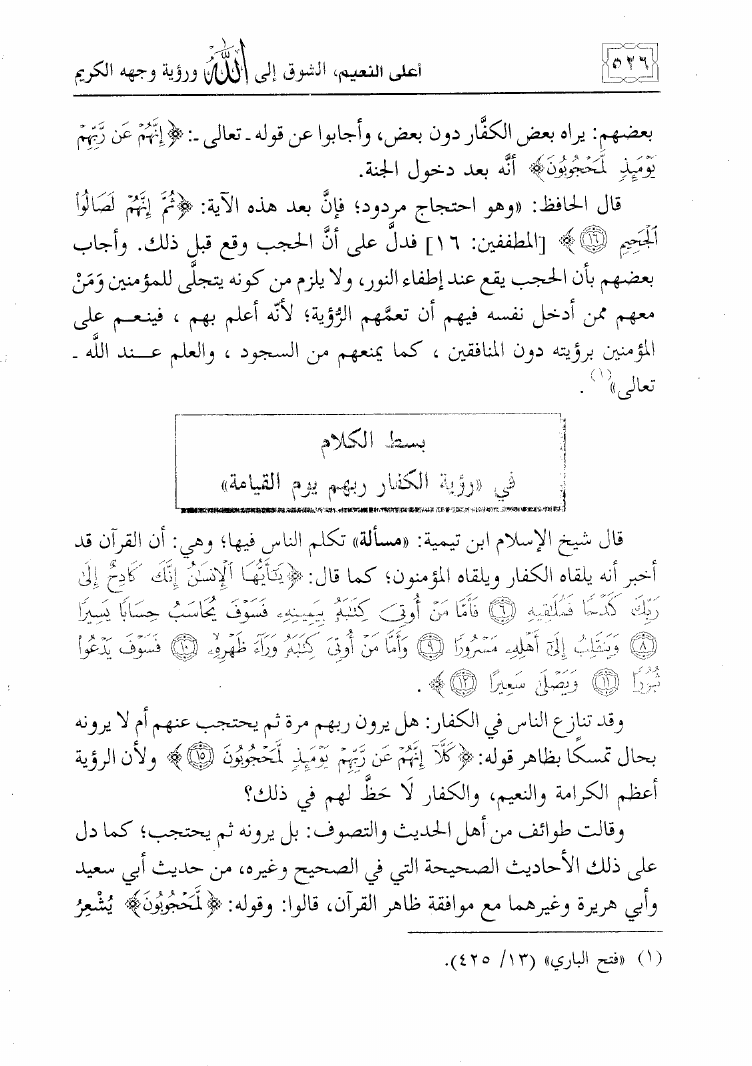 ٥٢٦
أعلى النعيم، الشوق إلى الله ورؤية وجهه الكريم
بعضهم: يراه بعض الكفَّار دون بعض، وأجابوا عن قوله ـ تعالى ـ: ﴿إِنَّهُمْ عَن رَّبِّهِمْ
يَوْمَئِذٍ لَّمَحْجُوبُونَ﴾ أنَّه بعد دخول الجنة.
قال الحافظ: «وهو احتجاج مردود؛ فإنَّ بعد هذه الآية: ﴿ثُمَّ إِنَّهُمْ لَصَالُوا۟
ٱلْجَحِيمِ ١٦﴾ [المطففين: ١٦] فدلَّ على أنَّ الحجب وقع قبل ذلك. وأجاب
بعضهم بأن الحجب يقع عند إطفاء النور، ولا يلزم من كونه يتجلَّى للمؤمنين وَمَنْ
معهم ممن أدخل نفسه فيهم أن تعمَّهم الرُّؤية؛ لأنَّه أعلم بهم ، فينعم على
المؤمنين برؤيته دون المنافقين ، كما يمنعهم من السجود ، والعلم عند اللَّه ـ
تعالى»(١) .
بسط الكلام
في «رؤية الكفار ربهم يوم القيامة»
قال شيخ الإسلام ابن تيمية: «مسألة» تكلم الناس فيها؛ وهي: أن القرآن قد
أخبر أنه يلقاه الكفار ويلقاه المؤمنون؛ كما قال: ﴿يَـٰٓأَيُّهَا ٱلْإِنسَـٰنُ إِنَّكَ كَادِحٌ إِلَىٰ
رَبِّكَ كَدْحًا فَمُلَـٰقِيهِ ٦ فَأَمَّا مَنْ أُوتِىَ كِتَـٰبَهُۥ بِيَمِينِهِۦ فَسَوْفَ يُحَاسَبُ حِسَابًا يَسِيرًا
٨ وَيَنقَلِبُ إِلَىٰٓ أَهْلِهِۦ مَسْرُورًا ٩ وَأَمَّا مَنْ أُوتِىَ كِتَـٰبَهُۥ وَرَآءَ ظَهْرِهِۦ ١٠ فَسَوْفَ يَدْعُوا۟
ثُبُورًا ١١ وَيَصْلَىٰ سَعِيرًا ١٢﴾ .
وقد تنازع الناس في الكفار: هل يرون ربهم مرة ثم يحتجب عنهم أم لا يرونه
بحال تمسكًا بظاهر قوله: ﴿كَلَّآ إِنَّهُمْ عَن رَّبِّهِمْ يَوْمَئِذٍ لَّمَحْجُوبُونَ ١٥﴾ ولأن الرؤية
أعظم الكرامة والنعيم، والكفار لَا حَظَّ لهم في ذلك؟
وقالت طوائف من أهل الحديث والتصوف: بل يرونه ثم يحتجب؛ كما دل
على ذلك الأحاديث الصحيحة التي في الصحيح وغيره، من حديث أبي سعيد
وأبي هريرة وغيرهما مع موافقة ظاهر القرآن، قالوا: وقوله: ﴿لَّمَحْجُوبُونَ﴾ يُشْعِرُ
(١) «فتح الباري» (١٣/ ٤٢٥).